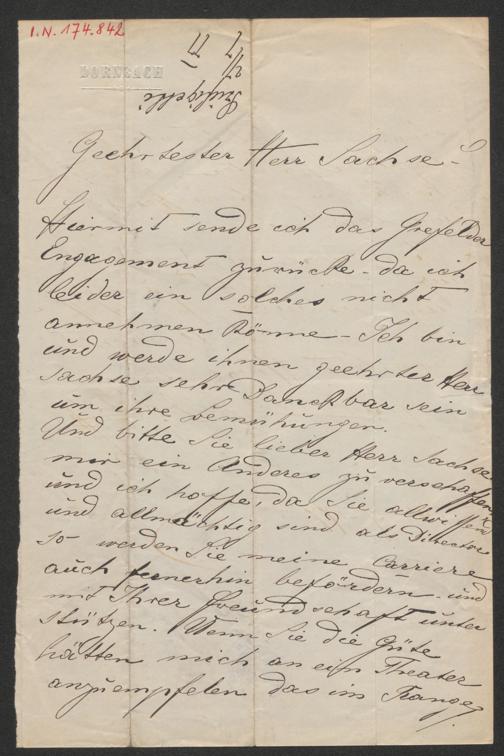 I.N. 174.842
DORNBACH
27/7 77
Geehrtester Herr Sachse -
Hiermit sende ich das Grefelder
Engagement zurücke - da ich
leider ein solches nicht
annehmen könne - Ich bin
und werde ihnen geehrter Herr
Sachse sehr Danckbar sein
um ihre Bemühungen.
Und bitte Sie lieber Herr Sachse
mir ein Anderes zu verschaffen
und ich hoffe, da Sie allwissend
und allmächtig sind als Director
so werden Sie meine Carriere
auch fernerhin befördern - und
mit Ihrer Freundschaft unter
stützen. Wenn Sie die Güte
hätten mich an ein Theater
anzuempfelen das im Range